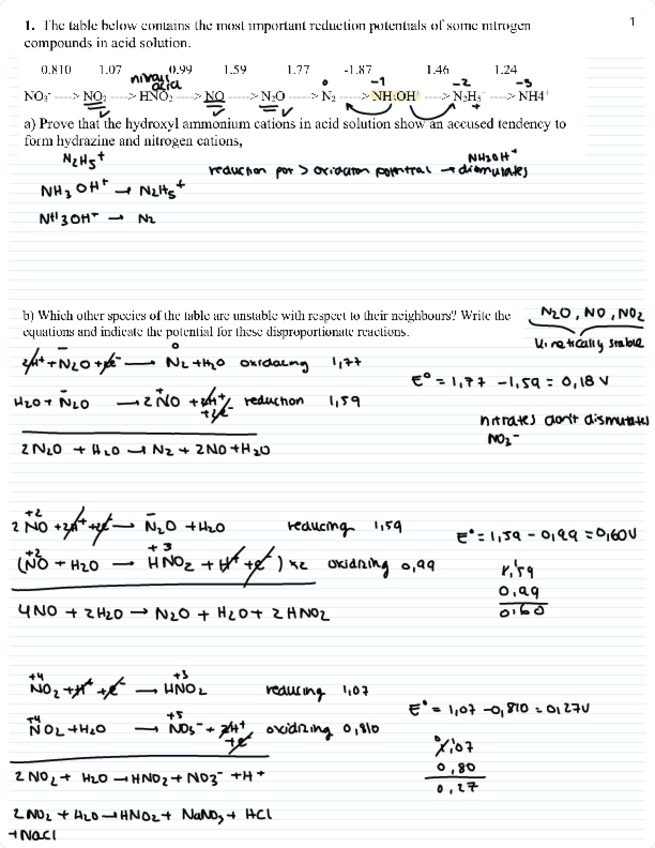 1
1. The table below contains the most important reduction potentials of some nitrogen
compounds in acid solution.
0.810 1.07 0.99 1.59 1.77 -1.87 1.46 1.24
acid
0 -1 -2 -3
NO₃⁻ ----> NO₂ ----> HNO₂ ----> NO ----> N₂O ----> N₂ ----> NH₃OH⁺ ----> N₂H₅⁺ ----> NH4⁺
a) Prove that the hydroxyl ammonium cations in acid solution show an accused tendency to
form hydrazine and nitrogen cations,
N₂H₅⁺
NH₃OH⁺
reduction pot > oxidation potential → dismutates
NH₃OH⁺ → N₂H₅⁺
NH3OH⁺ → N₂
b) Which other species of the table are unstable with respect to their neighbours? Write the
equations and indicate the potential for these disproportionate reactions.
N₂O, NO, NO₂
kinetically stable
2H⁺ + N₂O + 2e⁻ → N₂ + H₂O oxidazing 1,77
E° = 1,77 - 1,59 = 0,18 V
H₂O + N₂O → 2NO + 2H⁺ + 2e⁻ reduction 1,59
nitrates don't dismutates
NO₃⁻
2N₂O + H₂O → N₂ + 2NO + H₂O
+2
2NO + 2H⁺ + 2e⁻ → N₂O + H₂O reducing 1,59
E° = 1,59 - 0,99 = 0,60V
+2 +3
(NO + H₂O → HNO₂ + H⁺ + e⁻) x2 oxidizing 0,99
1,59
0,99
0,60
4NO + 2H₂O → N₂O + H₂O + 2HNO₂
+4 +3
NO₂ + H⁺ + e⁻ → HNO₂ reducing 1,07
E° = 1,07 - 0,810 = 0,27V
+4 +5
NO₂ + H₂O → NO₃⁻ + 2H⁺ + e⁻ oxidizing 0,810
1,07
0,80
0,27
2NO₂ + H₂O → HNO₂ + NO₃⁻ + H⁺
2NO₂ + H₂O → HNO₂ + NaNO₃ + HCl
+NaCl